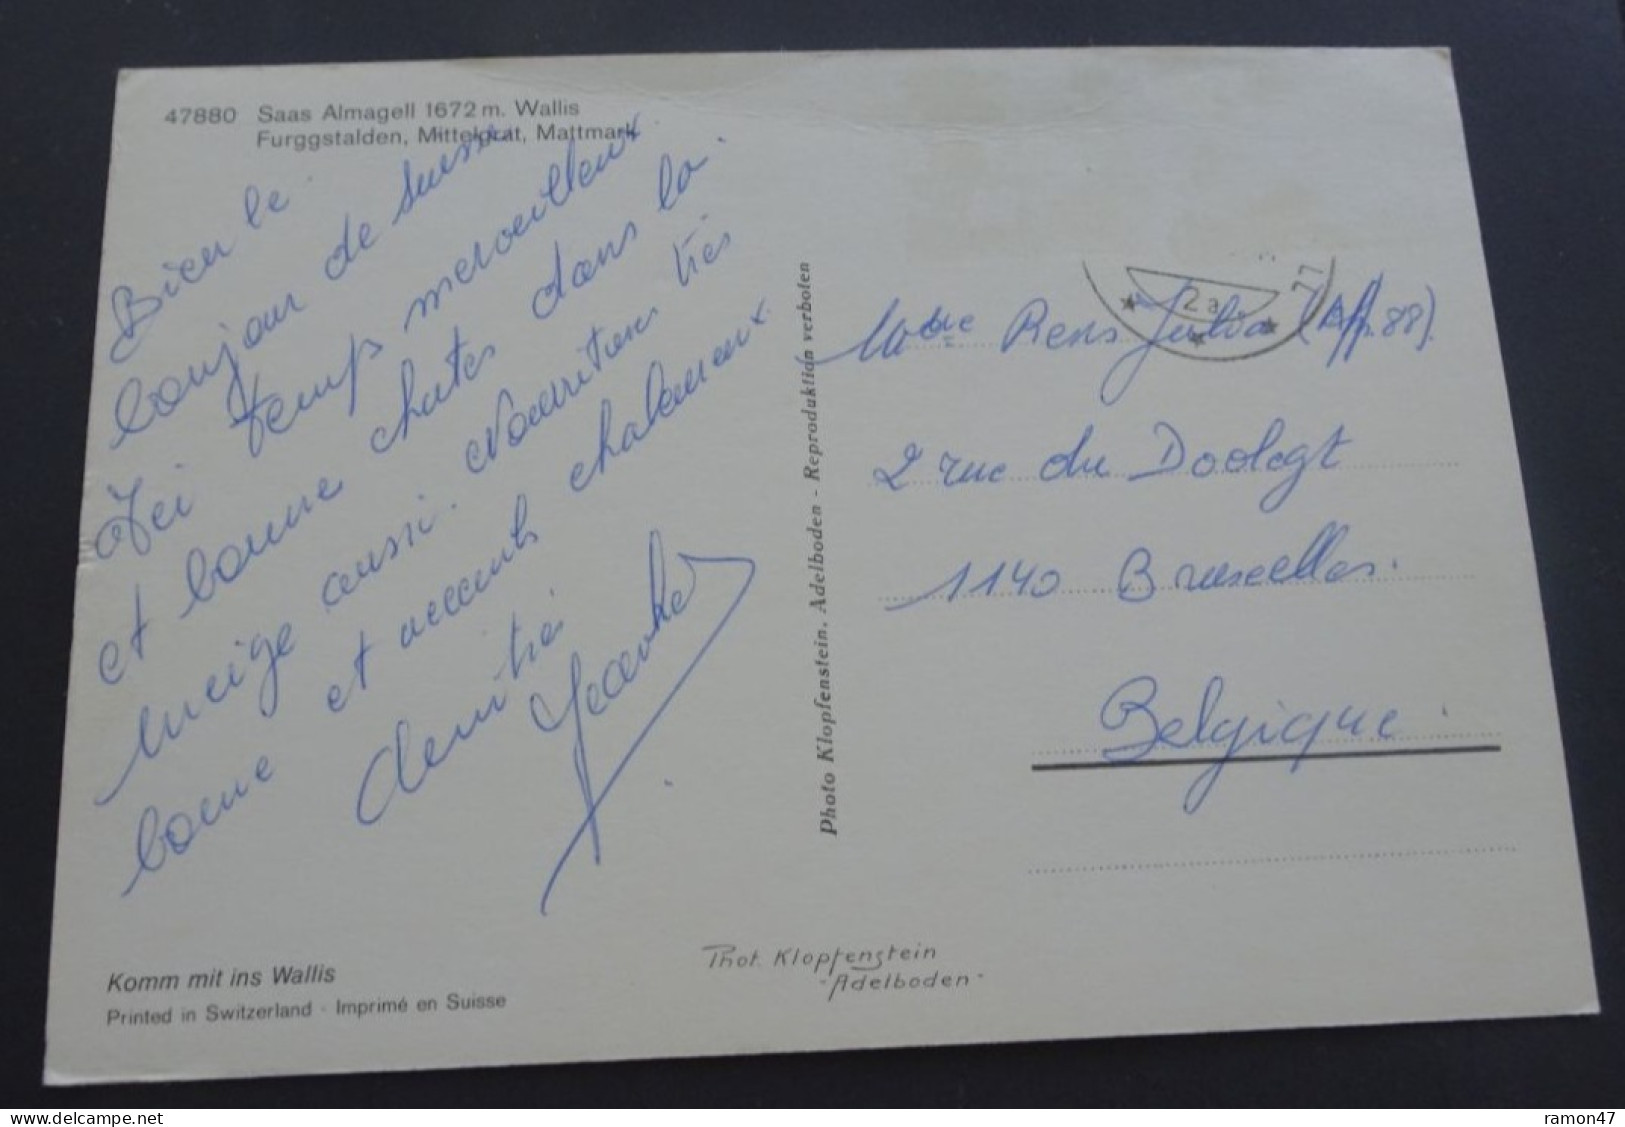 47880 Saas Almagell 1672 m. Wallis
Furggstalden, Mittelgrat, Mattmark
Bien le
bonjour de suisse
Ici temps merveilleux.
et bonne chutes dans la
neige aussi. Nourriture très
bonne et accueils chaleureux.
amitiés
Photo Klopfenstein, Adelboden - Reproduktion verboten
2 a
Mme Rens Julia (App. 88).
2 rue du Doolegt
1140 Bruxelles.
Belgique.
Phot. Klopfenstein
-Adelboden-
Komm mit ins Wallis
Printed in Switzerland · Imprimé en Suisse
www.delcampe.net
ramon47